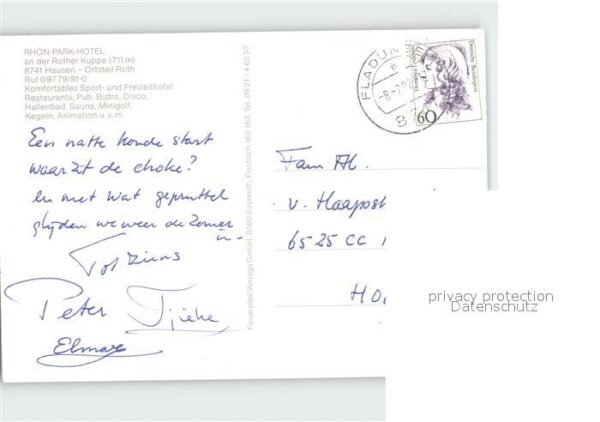 RHÖN-PARK-HOTEL
an der Rother Kuppe (711 m)
8741 Hausen - Ortsteil Roth
Ruf 0 97 79/91-0
Komfortables Sport- und Freizeithotel
Restaurants, Pub, Bistro, Disco,
Hallenbad, Sauna, Minigolf,
Kegeln, Animation u. v. m.
Een natte koude start
waar zit de choke?
En met wat gepruttel
glijden we weer de zomer
in -
Tot ziens
Peter Tjieke
Elmar
Feuerpfeil Verlags GmbH, 8580 Bayreuth, Postfach 160 163, Tel. 09 21 / 4 62 57
FLADUN
-8.-7.
87
Deutsche Bundespost
60
Fam
v. Haapst
6525 CC
HO
privacy protection
Datenschutz